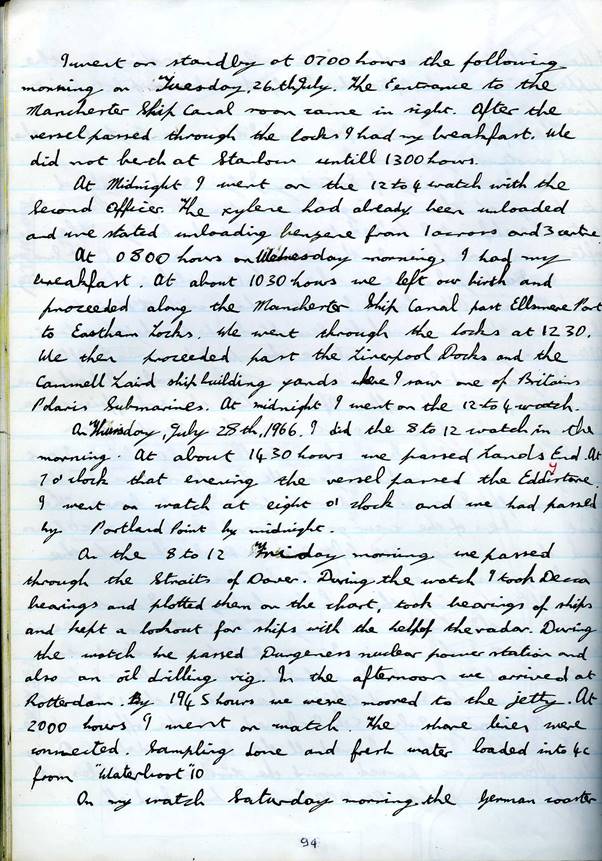 I went on standby at 0700 hours the following
morning on Tuesday, 26th July. The Eentrance to the
Manchester Ship Canal soon came in sight. After the
vessel passed through the locks I had my breakfast. We
did not berth at Stanlow untill 1300 hours.
At Midnight I went on the 12 to 4 watch with the
Second Officer. The xylene had already been unloaded
and we stated unloading benzene from 1 across and 3 centre.
At 0800 hours on Wednesday morning, I had my
breakfast. At about 1030 hours we left our birth and
proceeded along the Manchester Ship Canal past Ellsmere Port
to Eastham Locks. We went through the locks at 1230.
We then proceeded past the Liverpool Docks and the
Cammell Laird shipbuilding yards where I saw one of Britains
Polaris Submarines. At midnight I went on the 12 to 4 watch.
On Thursday, July 28th, 1966. I did the 8 to 12 watch in the
morning. At about 1430 hours we passed Lands End. At
7 o'clock that evening the vessel passed the Eddystone.
I went on watch at eight o'clock and we had passed
by Portland Point by midnight.
On the 8 to 12 Friday morning we passed
through the Straits of Dover. During the watch I took Decca
bearings and plotted them on the chart, took bearings of ships
and kept a lookout for ships with the help of the radar. During
the watch we passed Dungeness nuclear power station and
also an oil drilling rig. In the afternoon we arrived at
Rotterdam. By 1945 hours we were moored to the jetty. At
2000 hours I went on watch. The shore lines were
connected. Sampling done and fresh water loaded into 4c
from "Waterboot" 10
On my watch Saturday morning, the German coaster
94